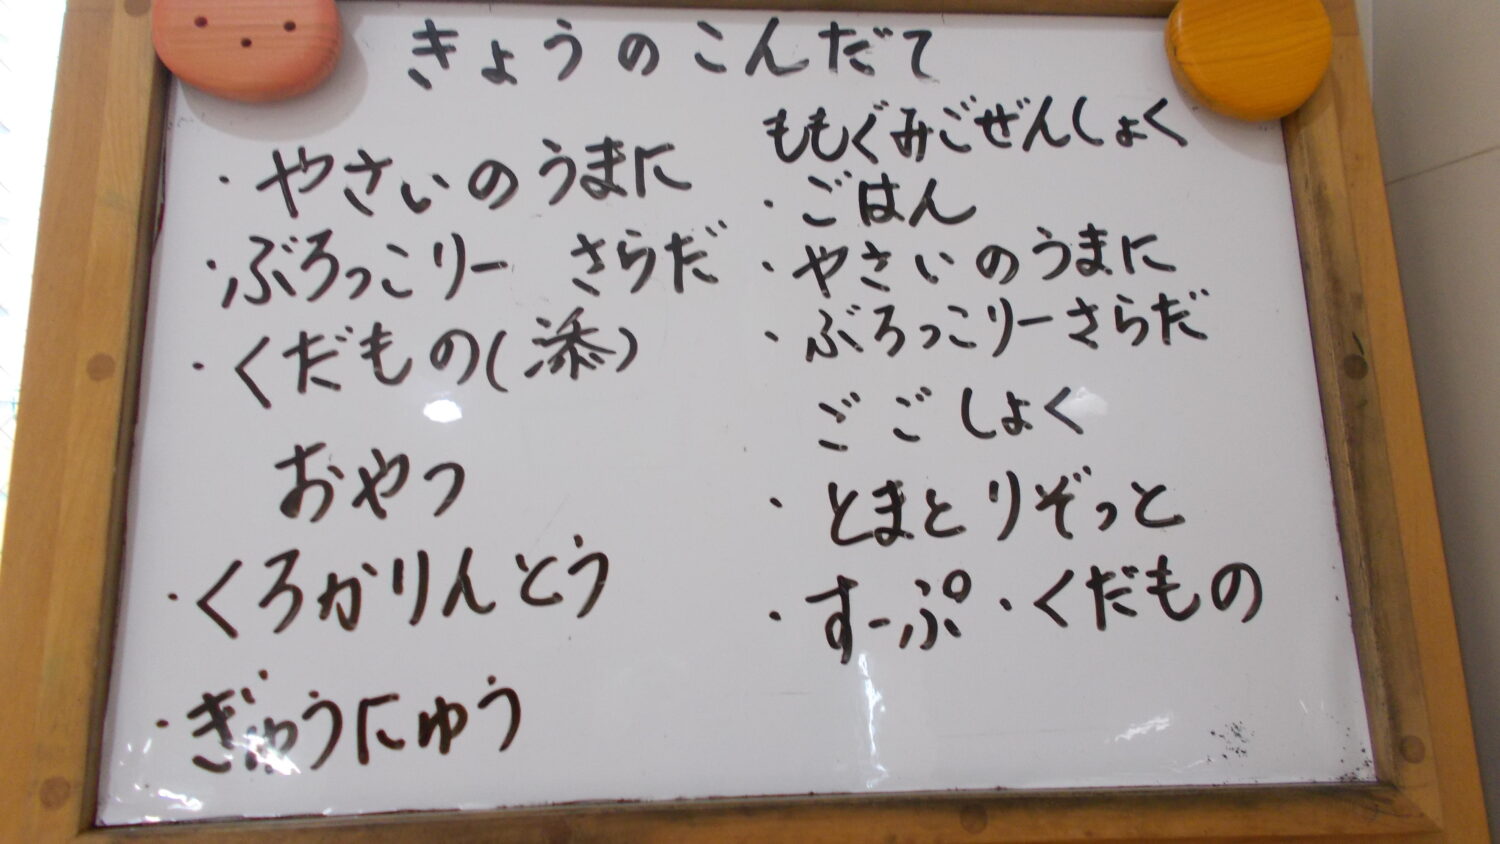 きょうのこんだて
・やさいのうまに
・ぶろっこりー さらだ
・くだもの(添)
おやつ
・くろかりんとう
・ぎゅうにゅう
ももぐみごぜんしょく
・ごはん
・やさいのうまに
・ぶろっこりーさらだ
ごごしょく
・とまとりぞっと
・すーぷ・くだもの